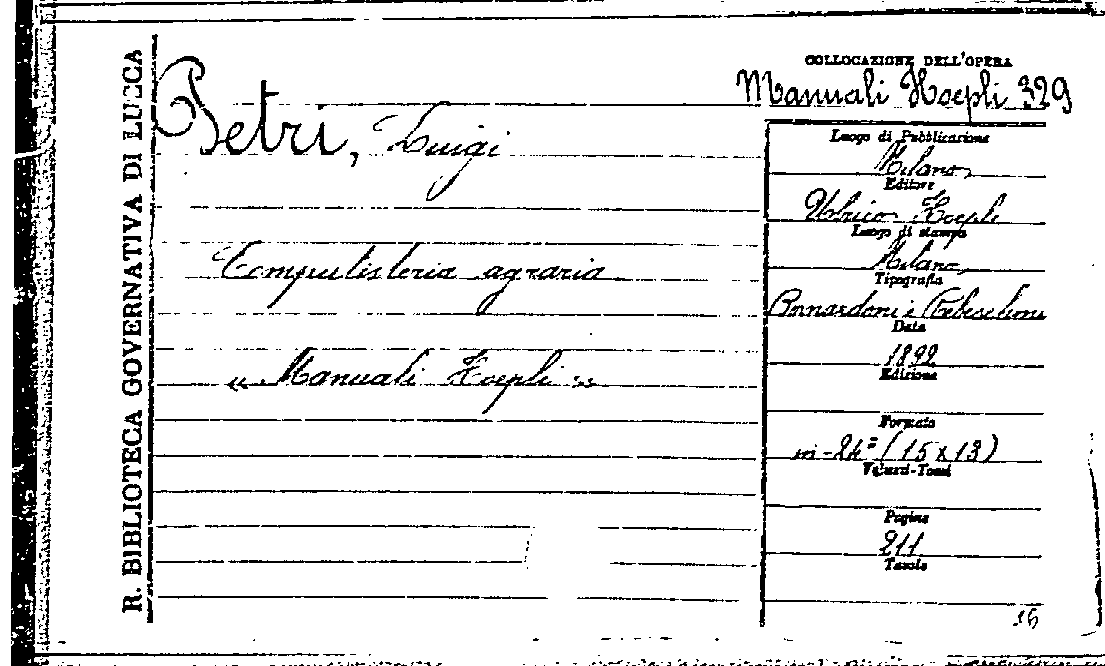 R. BIBLIOTECA GOVERNATIVA DI LUCCA
Petri, Luigi
Computisteria agraria
« Manuali Hoepli »
COLLOCAZIONE DELL'OPERA
Manuali Hoepli 329
Luogo di Pubblicazione
Milano
Editore
Ulrico Hoepli
Luogo di stampa
Milano
Tipografia
Data
1892
Edizione
Formato
in-24º (15x13)
Volumi-Tomi
Pagine
211
Tavole
16